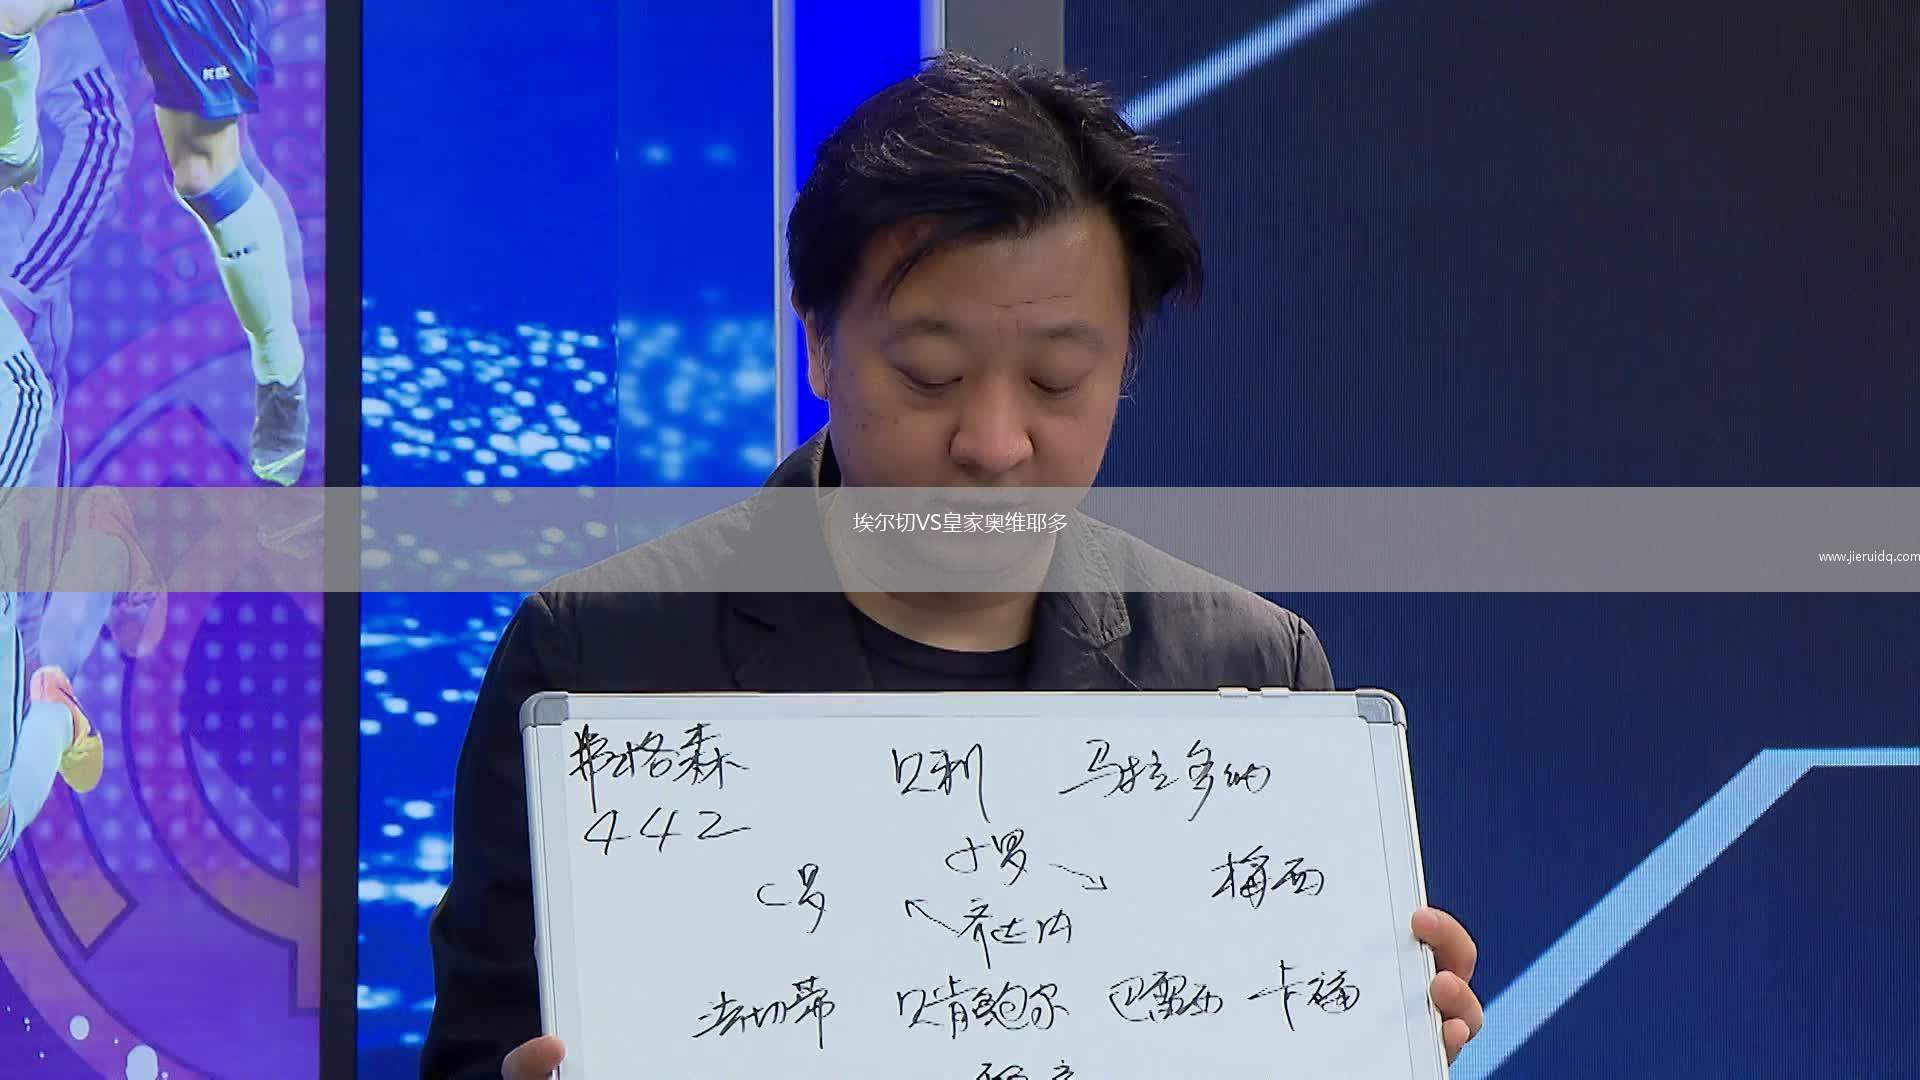 埃尔切VS皇家奥维耶多
www.jieruidq.com
弗格森 贝利 马拉多纳
442
小罗
C罗 梅西
齐达内
法切蒂 贝肯鲍尔 巴雷西 卡福